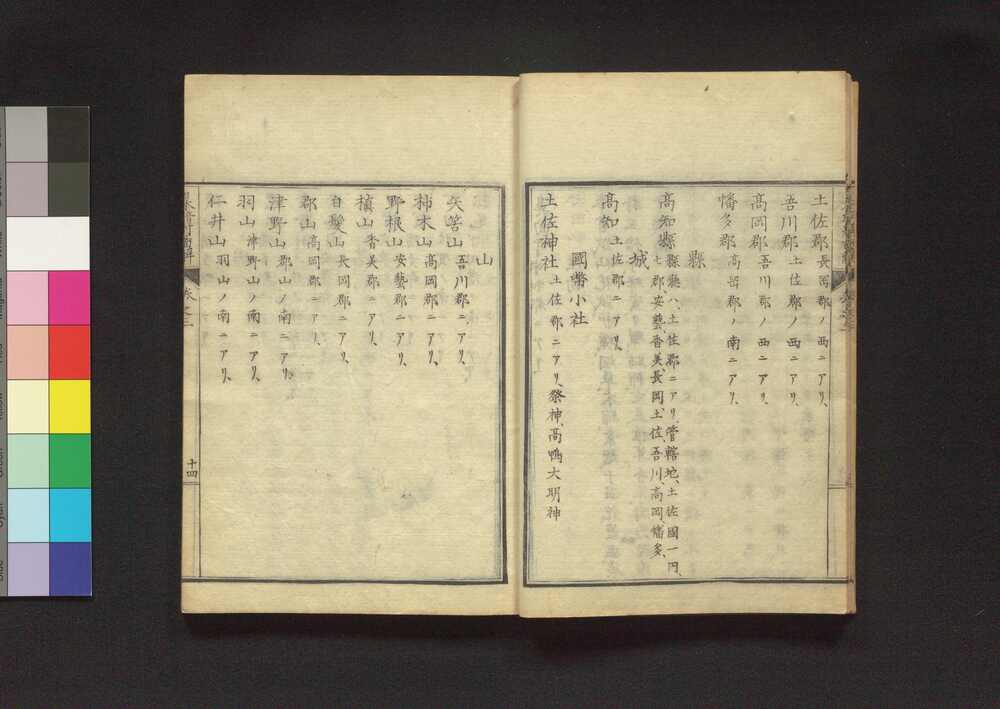 土佐郡 長岡郡ノ西ニアリ、
吾川郡 土佐郡ノ西ニアリ、
高岡郡 吾川郡ノ西ニアリ、
幡多郡 高岡郡ノ南ニアリ、
縣
高知縣 縣廳ハ、土佐郡ニアリ、管轄地、土佐國一円、
七郡安藝、香美、長岡、土佐、吾川、高岡、幡多、
城
高知 土佐郡ニアリ、
國幣小社
土佐神社 土佐郡ニアリ、祭神、高鴨大明神
山
矢筈山 吾川郡ニアリ、
柿木山 高岡郡ニアリ、
野根山 安藝郡ニアリ、
槙山 香美郡ニアリ、
白髪山 長岡郡ニアリ、
郡山 高岡郡ニアリ、
津野山 郡山ノ南ニアリ、
羽山 津野山ノ南ニアリ、
仁井山 羽山ノ南ニアリ、
十四